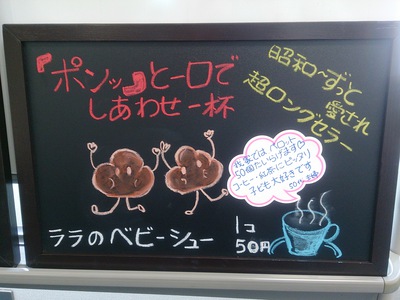 『ポンッ』と一口で
しあわせ一杯
昭和〜ずっと
愛され
超ロングセラー
我家では ペロット
50個たいらげます♡
コーヒー・紅茶にピッタリ
子ども大好きです
50代・主婦
ララのベビーシュー
1コ
50円